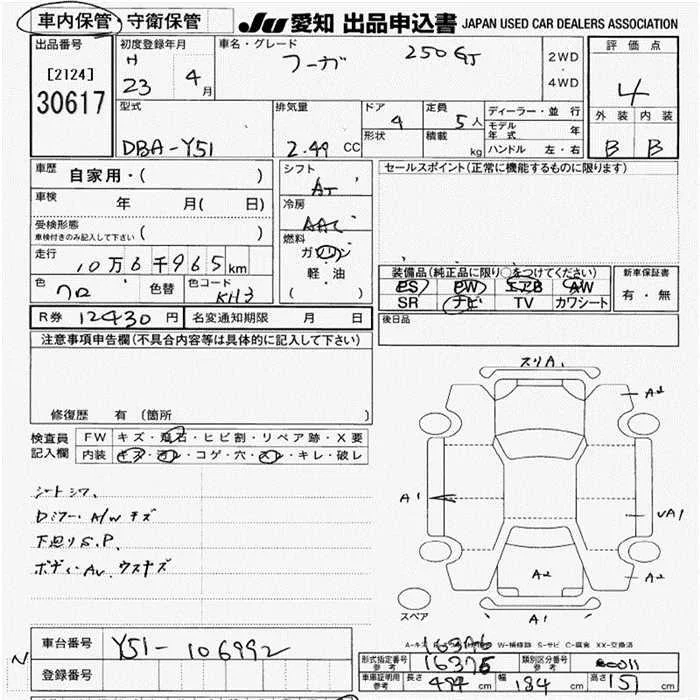 車内保管・守衛保管 JU 愛知 出品申込書 JAPAN USED CAR DEALERS ASSOCIATION
出品番号 初度登録年月 車名・グレード 評価点
[2124] H フーガ 250GT 2WD
30617 23 4月 ・ 4
4WD
型式 排気量 ドア 4 定員 5人 ディーラー・並行 外装 内装
モデル年式 年
DBA-Y51 2.49 CC 形状 積載 kg ハンドル 左・右 B B
車歴 自家用・( ) シフト セールスポイント(正常に機能するものに限ります)
AT
車検 年 月( 日) 冷房
AAC
受検形態 ( )
車検付きのみ記入して下さい 燃料
走行 10万6千965km ガソリン 装備品(純正品に限り○をつけてください) 新車保証書
軽油 PS PW エアB AW 有・無
色 クロ 色替 色コード KH3 ( ) SR ナビ TV カワシート
R券 12430円 名変通知期限 月 日 後日品
注意事項申告欄(不具合内容等は具体的に記入して下さい)
スリA1
A2
修復歴 有(箇所
検査員 FW キズ・飛石・ヒビ割・リペア跡・X要
記入欄 内装 キズ・汚レ・コゲ・穴・スレ・キレ・破レ
シートシワ、 A1
Dミラー・A/Wキズ VA1
下廻りS.P.
ボディーAv ウスキズ A2 A2
スペア A1
車台番号 Y51-106992 W-補修跡 S-サビ C-腐食 XX-交換済
型式指定番号 参考 16375 類別区分番号 参考 0011
N 登録番号 車庫証明用 参考 長さ 494cm 幅 184cm 高さ 151cm